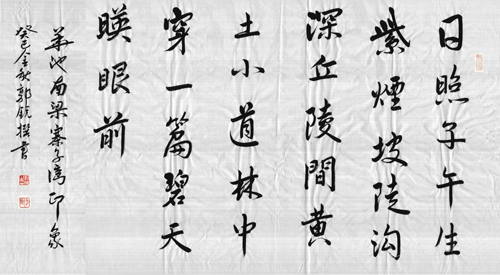 日照子午生
紫煙坡陡沟
深丘陵間黄
土小道林中
穿一篇碧天
暎眼前
華池南梁寨子湾印象
癸巳金秋郭銳撰書